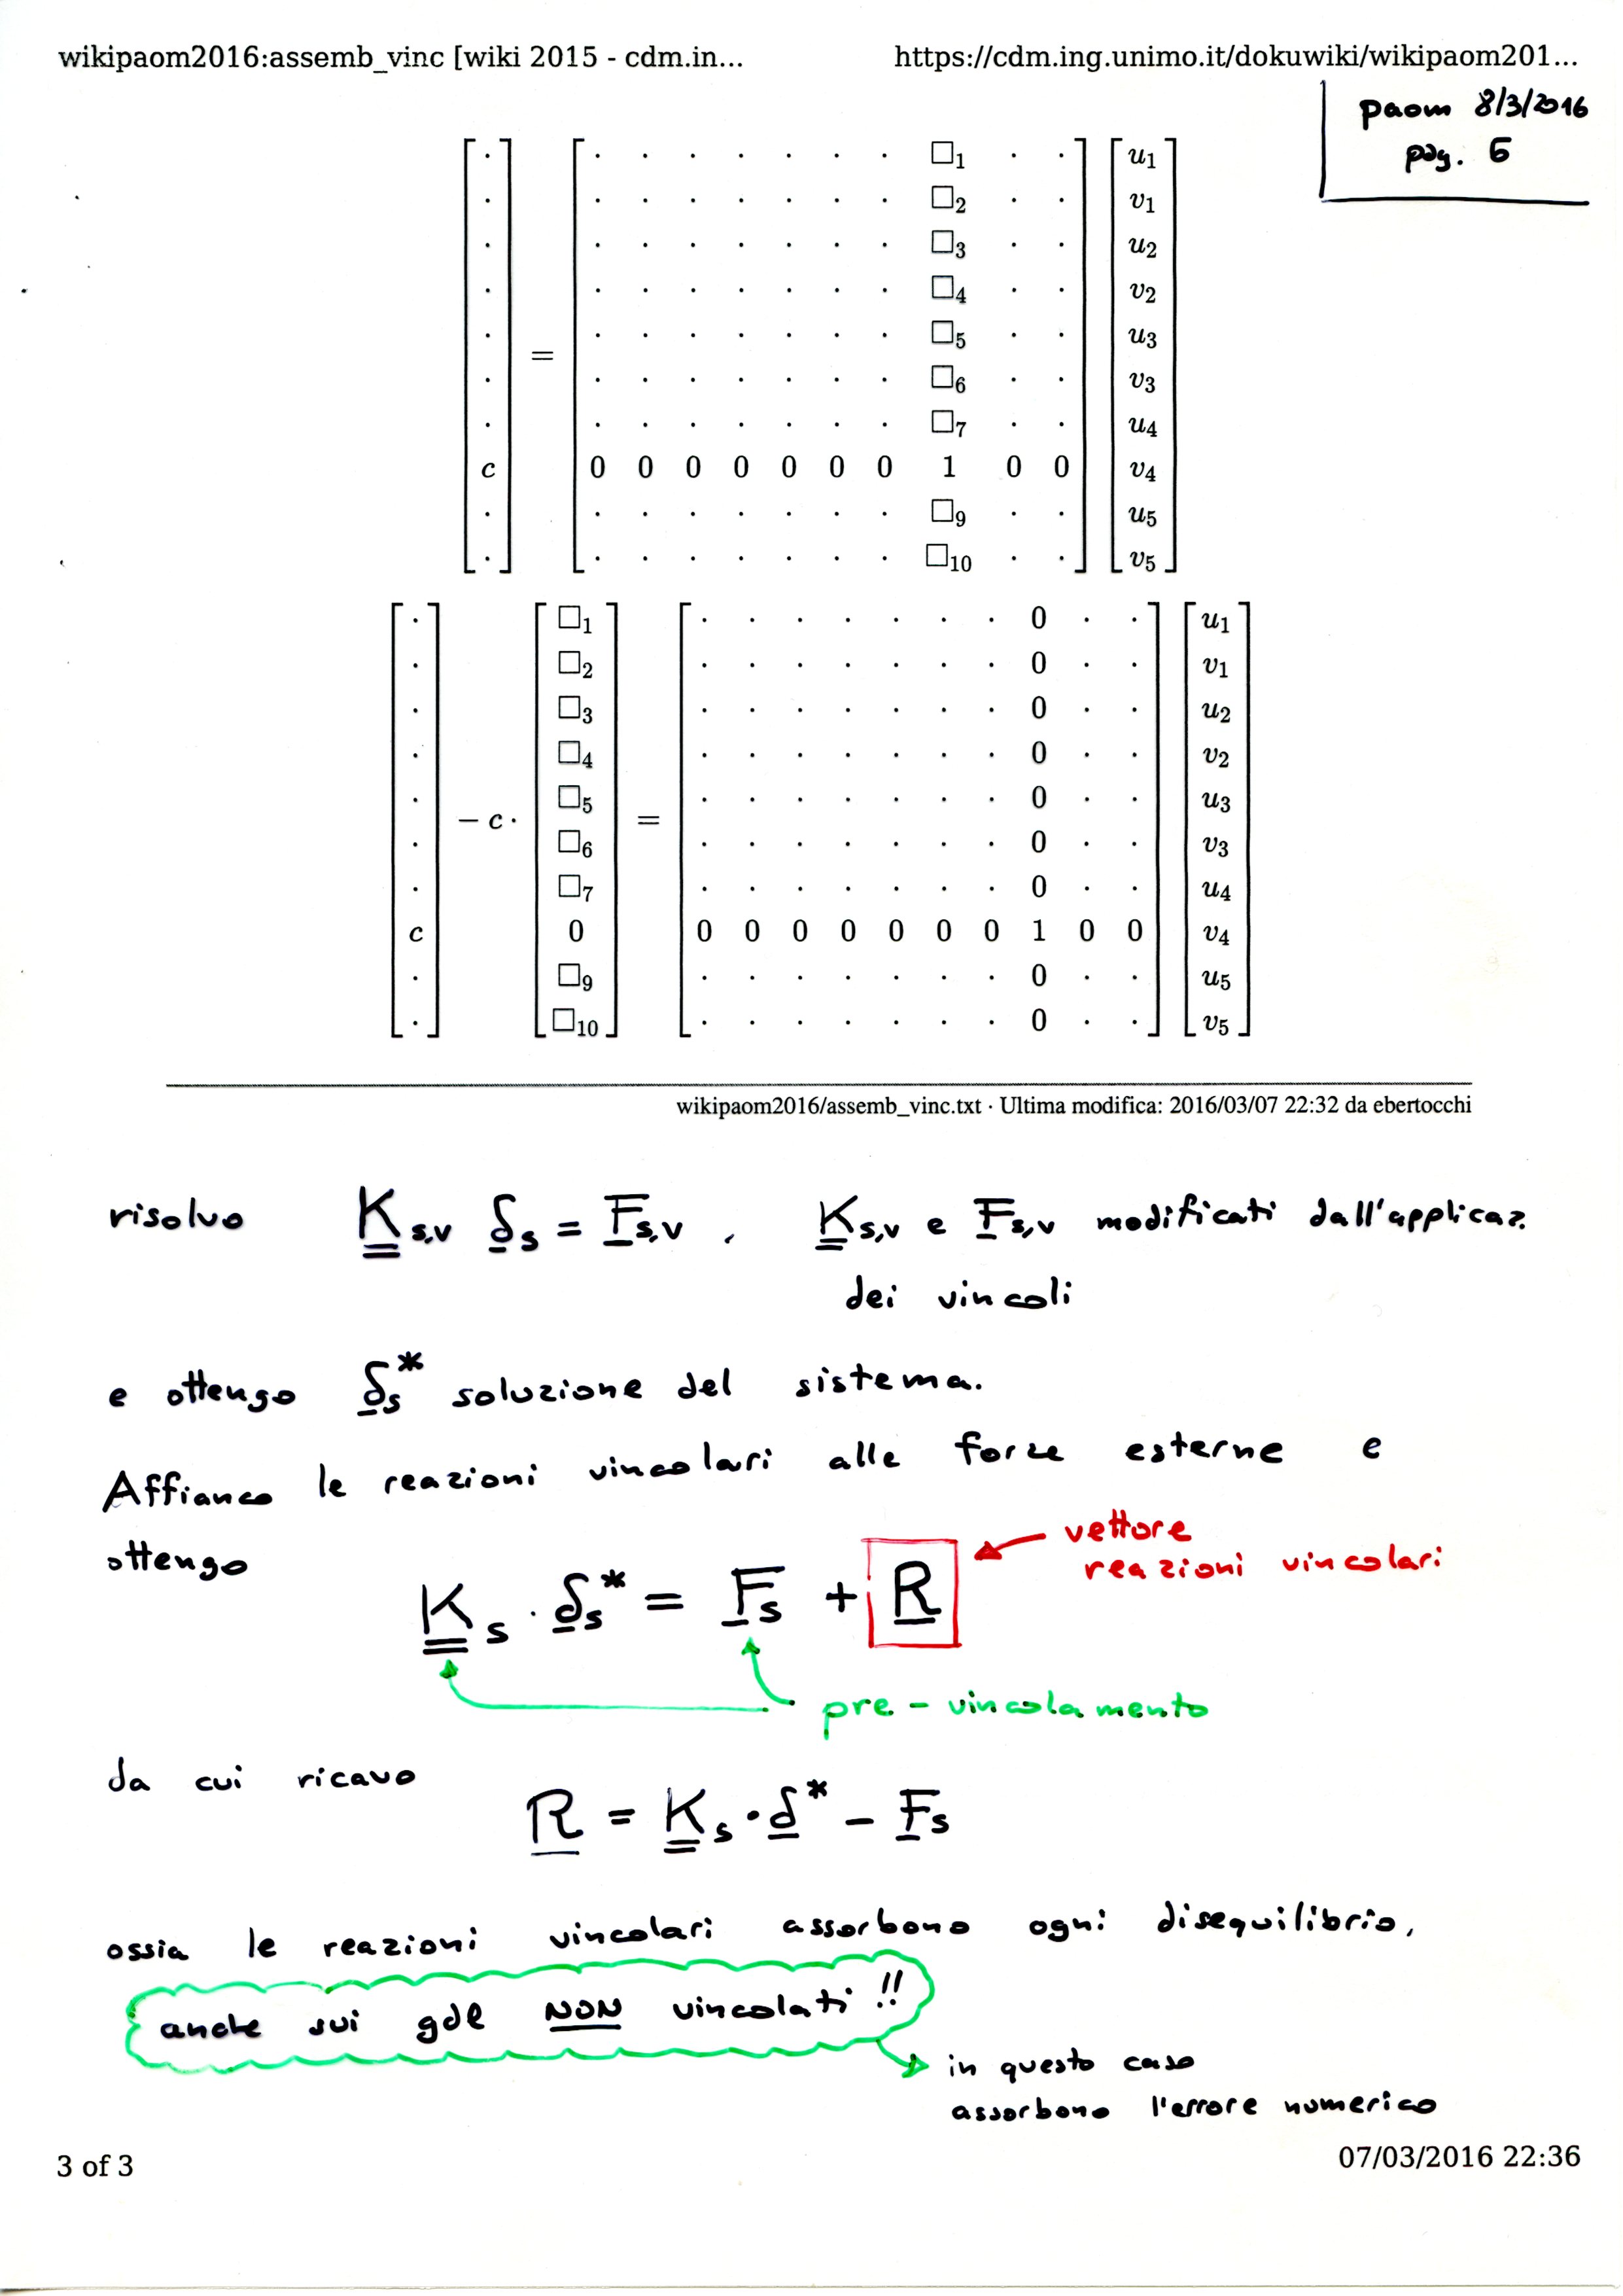 wikipaom2016:assemb_vinc [wiki 2015 - cdm.in...
https://cdm.ing.unimo.it/dokuwiki/wikipaom201...
paom 8/3/2016
pag. 5
[ . ] [ . . . . . . . □1 . . ] [ u1 ]
. . . . . . . . □2 . . v1
. . . . . . . . □3 . . u2
. . . . . . . . □4 . . v2
. . . . . . . . □5 . . u3
= 
. . . . . . . . □6 . . v3
. . . . . . . . □7 . . u4
c 0 0 0 0 0 0 0 1 0 0 v4
. . . . . . . . □9 . . u5
. . . . . . . . □10 . . v5
[ . ] [ □1 ] [ . . . . . . . 0 . . ] [ u1 ]
. □2 . . . . . . . 0 . . v1
. □3 . . . . . . . 0 . . u2
. □4 . . . . . . . 0 . . v2
. □5 . . . . . . . 0 . . u3
− c · =
. □6 . . . . . . . 0 . . v3
. □7 . . . . . . . 0 . . u4
c 0 0 0 0 0 0 0 0 1 0 0 v4
. □9 . . . . . . . 0 . . u5
. □10 . . . . . . . 0 . . v5
wikipaom2016/assemb_vinc.txt · Ultima modifica: 2016/03/07 22:32 da ebertocchi
risolvo K s,v δ s = F s,v , K s,v e F s,v modificati dall'applicaz.
dei vincoli
e ottengo δs* soluzione del sistema.
Affianco le reazioni vincolari alle forze esterne e
ottengo
vettore
reazioni vincolari
K s · δs* = F s + R
pre-vincolamento
da cui ricavo
R = K s · δ* − F s
ossia le reazioni vincolari assorbono ogni disequilibrio,
anche sui gdl NON vincolati !!
in questo caso
assorbono l'errore numerico
3 of 3
07/03/2016 22:36